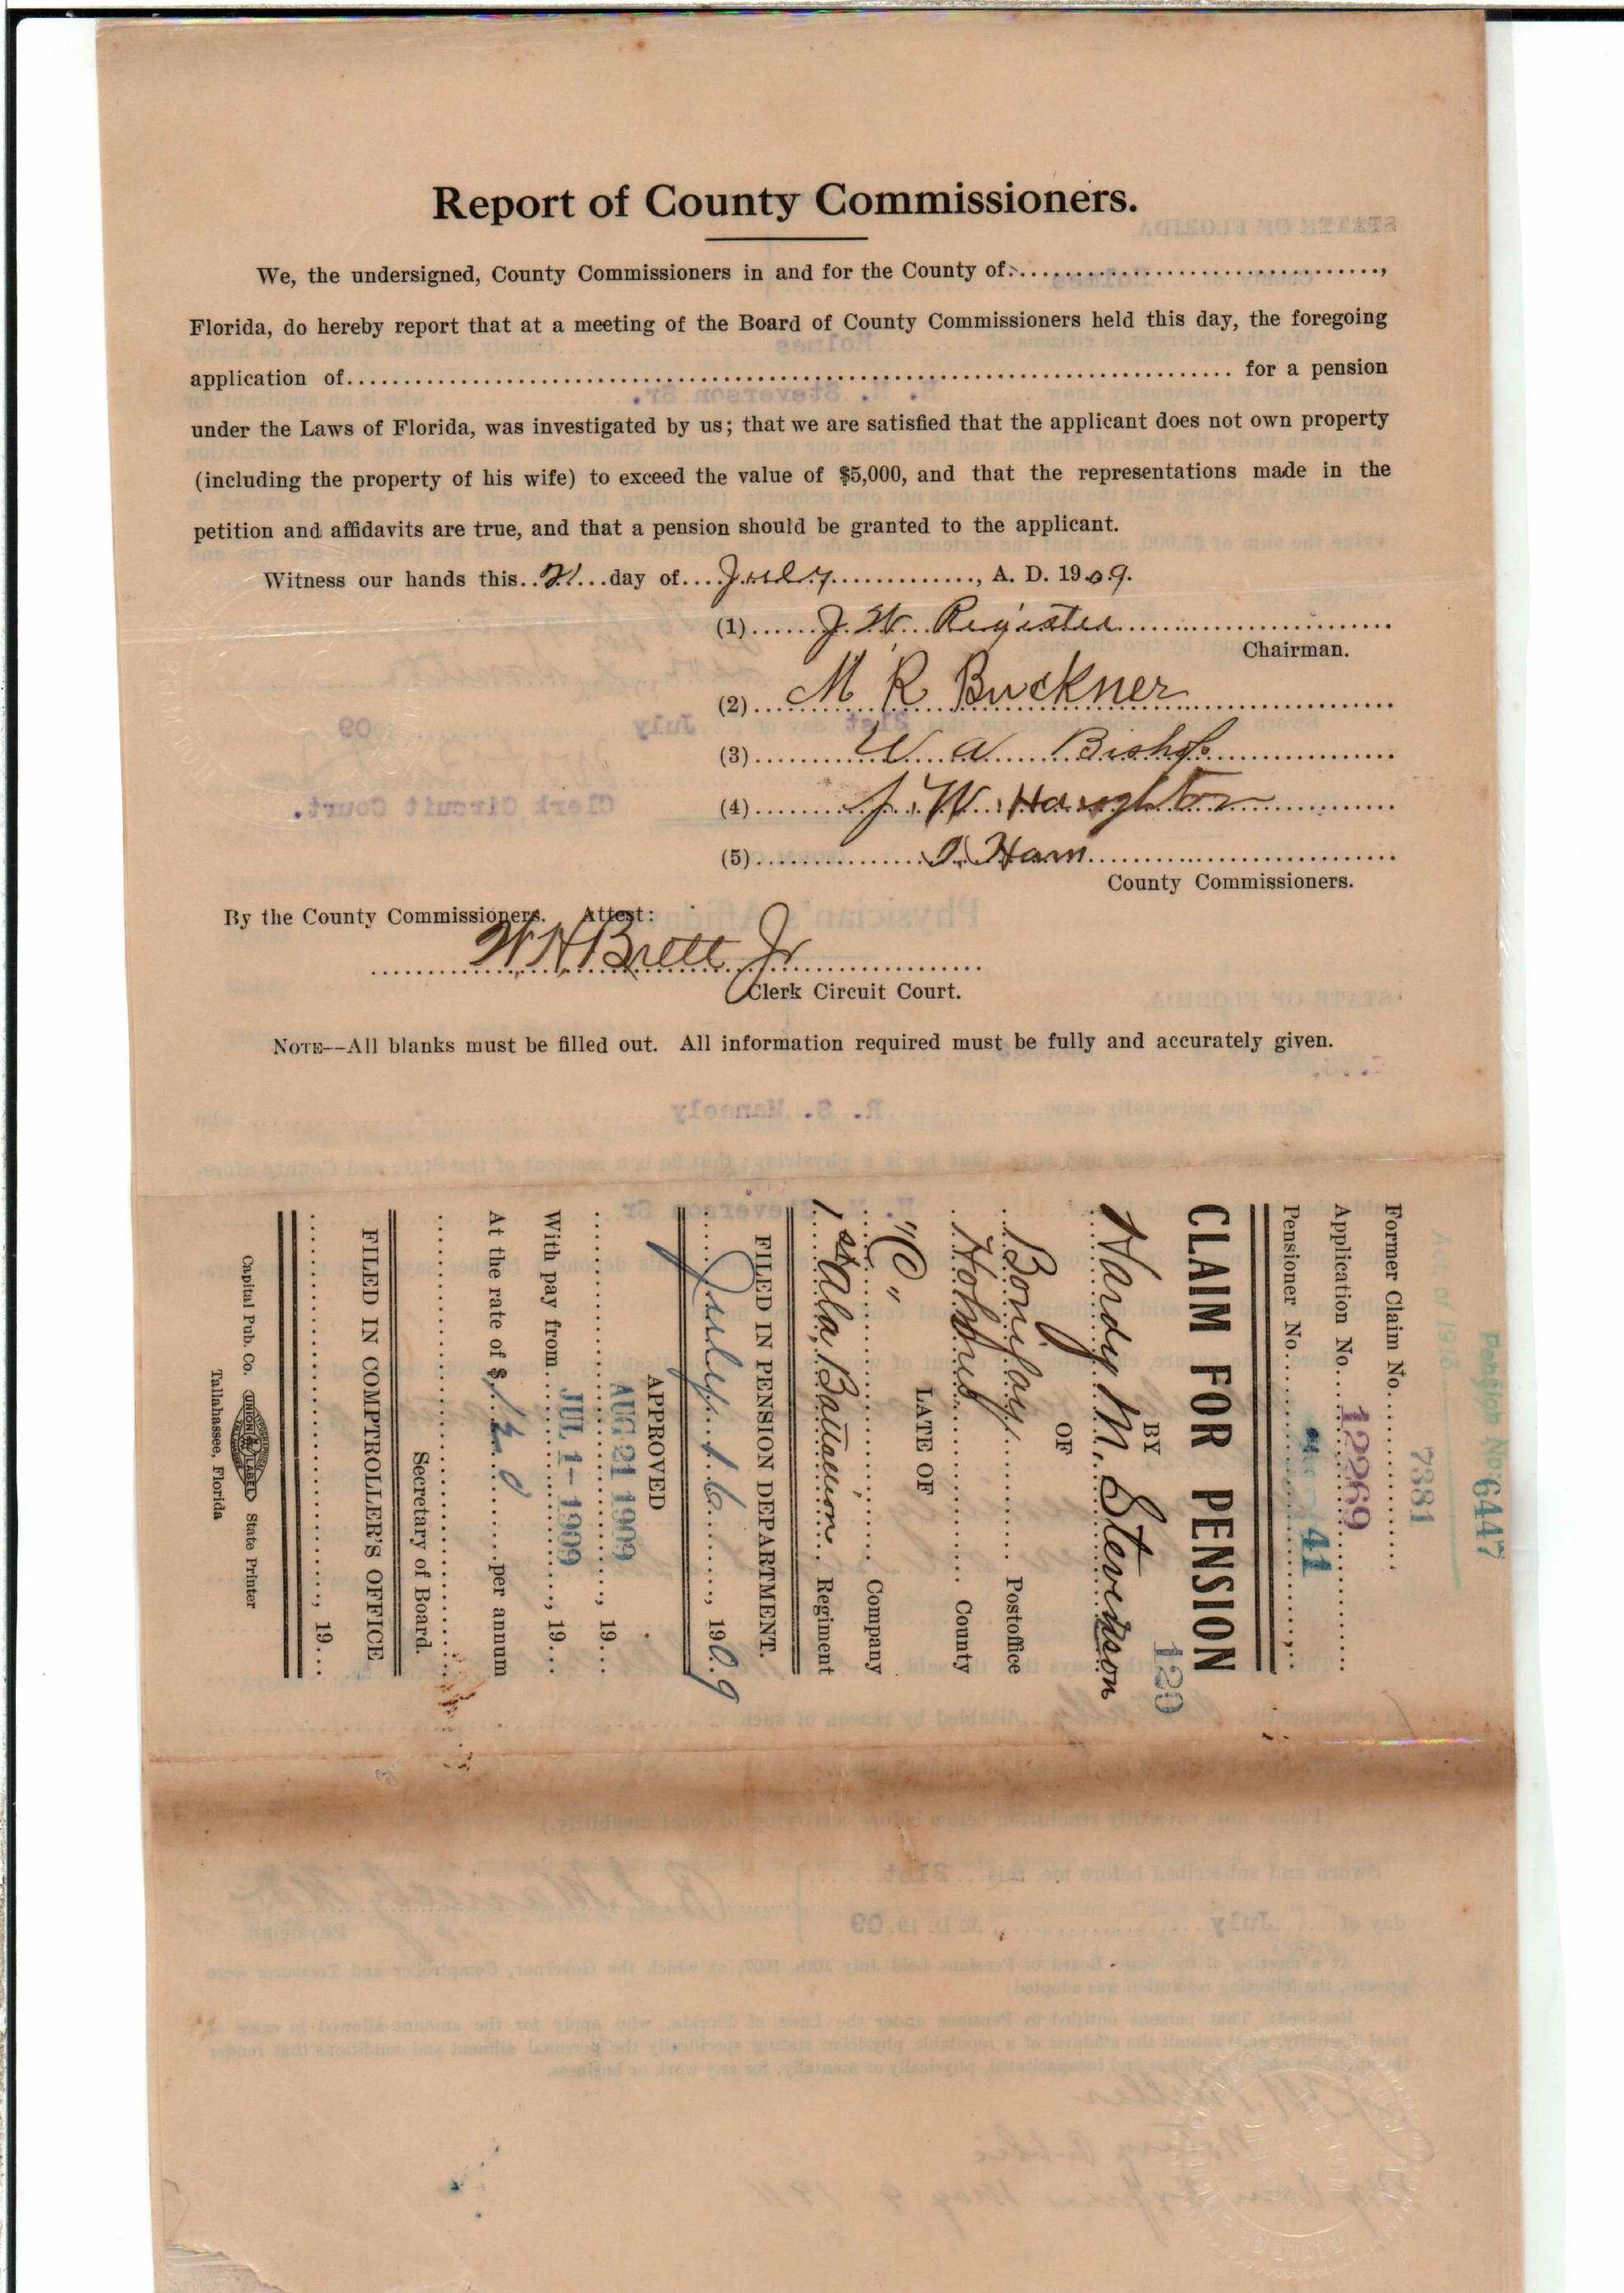 Report of County Commissioners.
We, the undersigned, County Commissioners in and for the County of...............................,
Florida, do hereby report that at a meeting of the Board of County Commissioners held this day, the foregoing
application of............................................................ for a pension
under the Laws of Florida, was investigated by us; that we are satisfied that the applicant does not own property
(including the property of his wife) to exceed the value of $5,000, and that the representations made in the
petition and affidavits are true, and that a pension should be granted to the applicant.
Witness our hands this 21 day of July, A. D. 1909.
(1) J. W. Register
Chairman.
(2) M R Buckner
(3) W. A. Bishop
(4) J. W. Haughton
(5) I. Ham
County Commissioners.
By the County Commissioners. Attest:
W H Brett Jr
Clerk Circuit Court.
NOTE--All blanks must be filled out. All information required must be fully and accurately given.
Pension No. 6447
Act of 1913
7381
Former Claim No.
Application No. 12269
Pensioner No. 41
CLAIM FOR PENSION
129
BY
Hardy M. Stevenson
OF
Bonifay Postoffice
Holmes County
LATE OF
"C" Company
1st Ala, Battalion Regiment
FILED IN PENSION DEPARTMENT.
July 16, 1909
APPROVED
AUG 21 1909, 19...
With pay from JUL 1- 1909, 19...
At the rate of $120 per annum
Secretary of Board.
FILED IN COMPTROLLER'S OFFICE
, 19...
Capital Pub. Co. UNION LABEL State Printer
Tallahassee, Florida